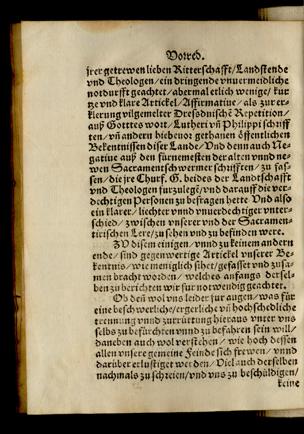 Vorred.
jrer getrewen lieben Ritterschafft/Landstende
vnd Theologen/ ein dringende vnuermeidliche
notdurfft geachtet/abermal etlich wenige/ kur
tze vnd klare Artickel/Affirmatiue/ als zur er-
klerung vilgemelter Dresdnischẽ Repetition/
auß Gotttes wort/Lutheri vñ Philippi schriff
ten/vñ andern hieben gethanen öffentlichen
Bekentnissen diser Lande/Vnd denn auch Ne-
gatiue auß den fürnemesten der alten vnnd ne-
wen Sacramentschwermer schrifften/ zu fas-
sen/ die jre Churf. G. beides der Landtschafft
vnd Theologen furzulegẽ/vnd darauff die ver-
dechtigen Personen zu befragen hette Vnd also
ein klarer/ liechter vnnd vnuerdechtiger vnter-
schied/ zwischen vnserer vnd der Sacramen-
tirischen Lere/zu sehen vnd zu befinden were.
ZV disem einigen/vnnd zu keinem andern
ende/ sind gegenwertige Artickel vnserer Be-
kentnis/wie meniglich sihet/gefasset vnd zusa-
men bracht worden/ welches anfangs dersel-
ben zu berichten wir fur notwendig geachtet.
Ob deñ wol vns leider zur augen/was für
eine beschwerliche/ergerliche vñ hochschedliche
trennung vnnd zurrüttung hieraus vnter vns
selbs zu befürchten vnnd zu befahren sein will/
daneben auch wol verstehen/ wie hoch dessen
allen vnsere gemeine Feinde sich frewen/ vnnd
darüber erlustiget werden/Viel auch derselben
nachmals zu schreien/vnd vns zu beschüldigen/
keine